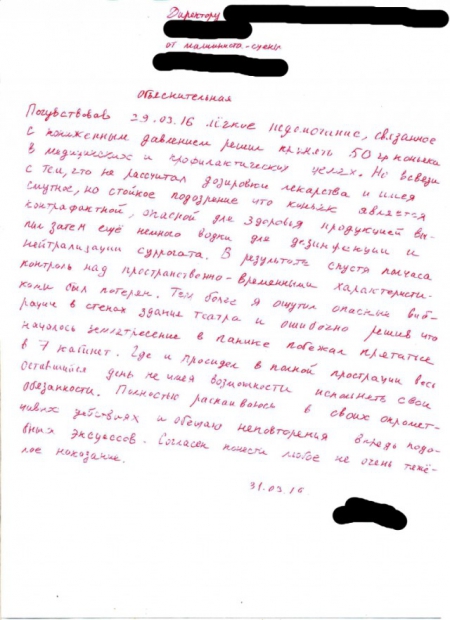 Директору
от машиниста-сцены
Объяснительная
Почувствовав 29.03.16 лёгкое недомогание, связанное
с пониженным давлением решил принять 50 гр коньяка
в медицинских и профилактических целях. Но всвязи
с тем, что не рассчитал дозировки лекарства и имея
смутное, но стойкое подозрение что коньяк является
контрафактной, опасной для здоровья продукцией вы-
пил затем ещё немного водки для дезинфекции и
нейтрализации суррогата. В результате спустя полчаса
контроль над пространственно-временными характеристи-
ками был потерян. Тем более я ощутил опасные виб-
рации в стенах здания театра и ошибочно решив что
началось землетресение в панике побежал прятатьсе
в 7 кабинет. Где и просидел в полной прострации весь
оставшийся день не имея возможности исполнять свои
обязанности. Полностью раскаиваюсь в своих опромет-
чивых действиях и обещаю неповторения впредь подо-
бных эксцессов. Согласен понести любое не очень тяжё-
лое наказание.
31.03.16